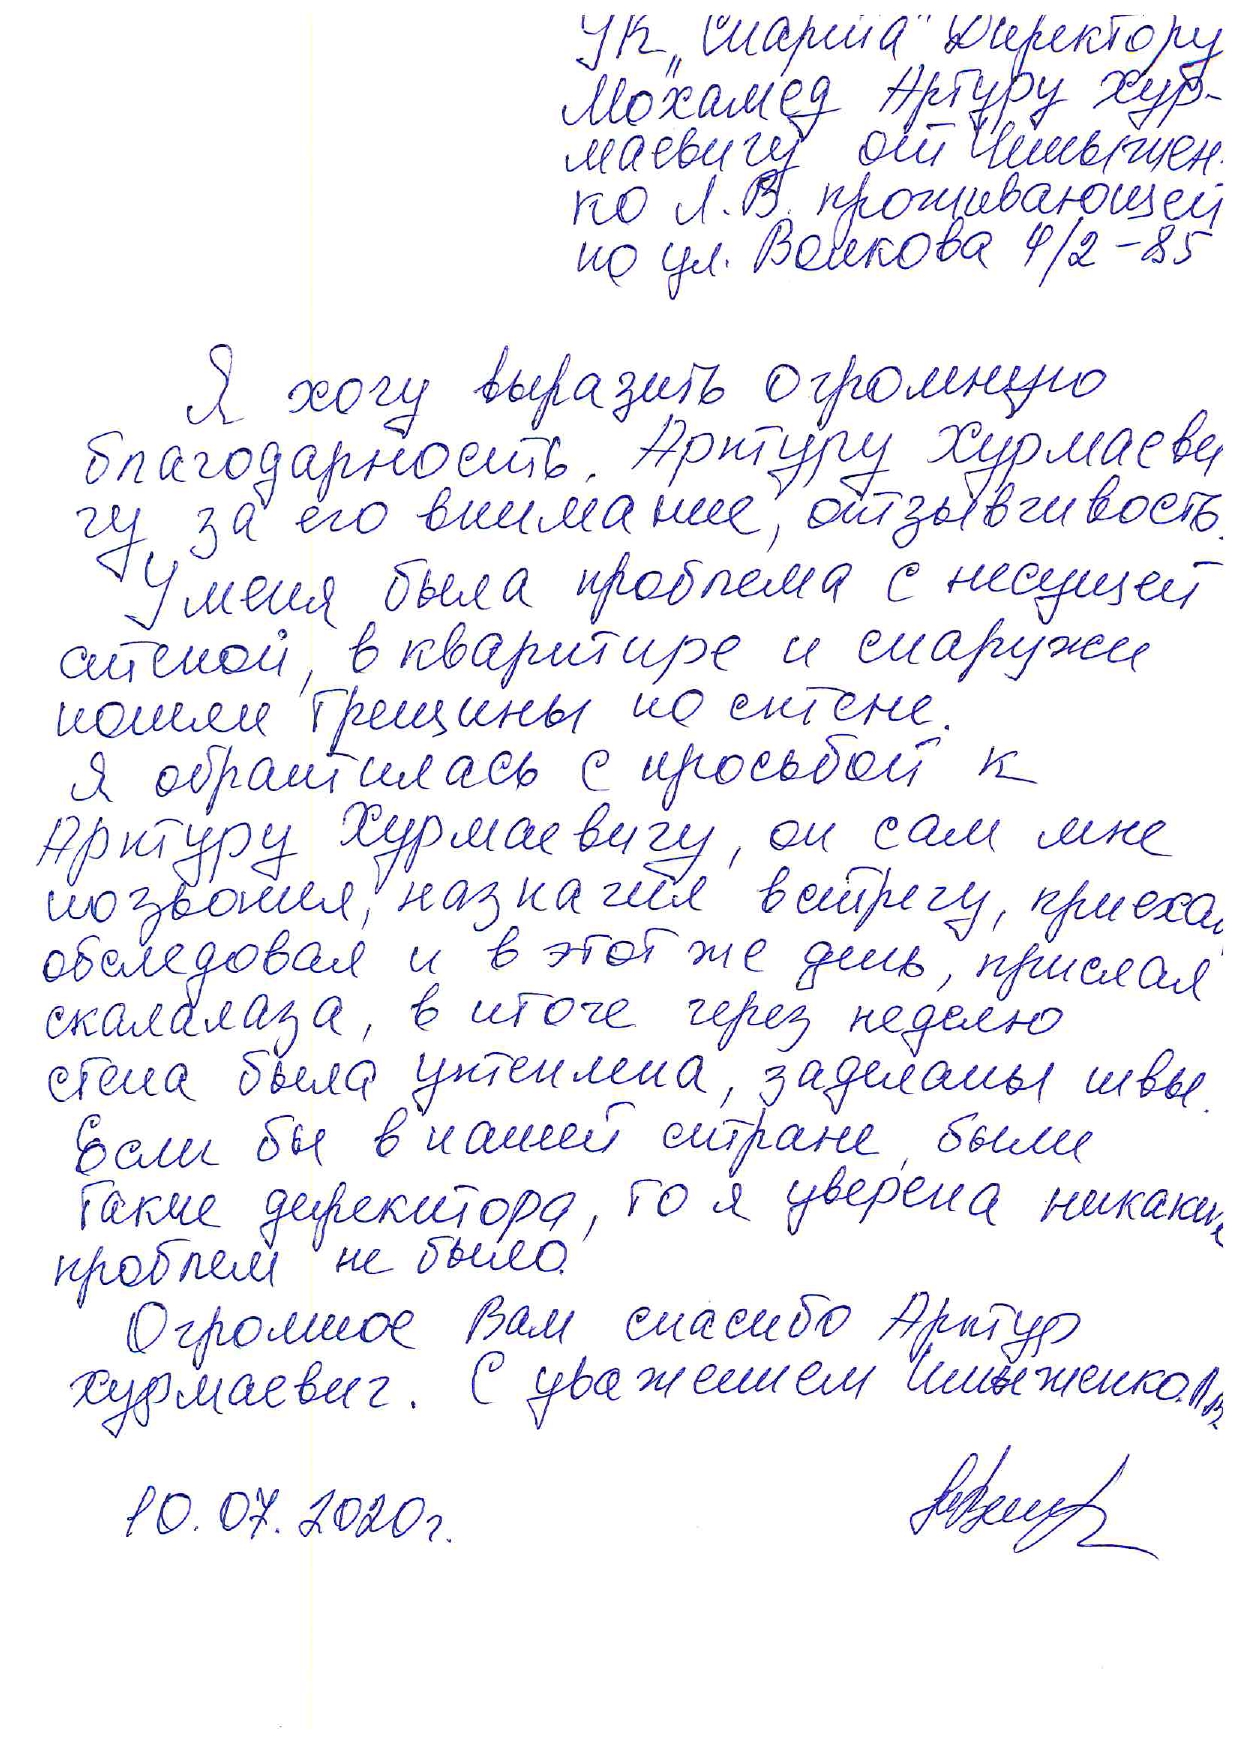 УК „Спарта" Директору
Мохамед Артуру Хур-
маевичу от
ко Л.В. проживающей
по ул. Волкова 9/2-85
Я хочу выразить огромную
благодарность. Артуру Хурмаеви
чу за его внимание, отзывчивость.
У меня была проблема с несущей
стеной, в квартире и снаружи
пошли трещины по стене.
Я обратилась с просьбой к
Артуру Хурмаевичу, он сам мне
позвонил, назначил встречу, приехал
обследовал и в этот же день, прислал
скалалаза, в итоге через неделю
стена была утеплена, заделаны швы.
Если бы в нашей стране, были
такие директора, то я уверена никаких
проблем не было.
Огромное Вам спасибо Артур
Хурмаевич. С уважением Л.В.
10.07.2020г.